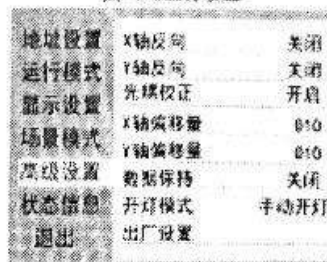 地址设置
运行模式
显示设置
场景模式
高级设置
状态信息
退出
X轴反向 关闭
Y轴反向 关闭
光耦校正 开启
X轴偏移量 010
Y轴偏移量 010
数据保持 关闭
开灯模式 手动开灯
出厂设置